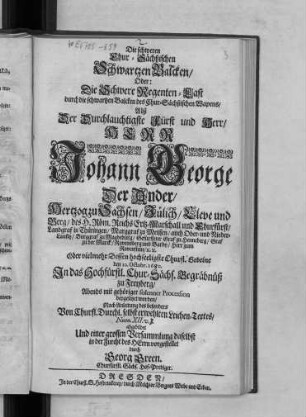 Die schweren
Chur-Sächsischen
Schwartzen Balcken/
Oder:
Die Schwere Regenten-Last
durch die schwartzen Balcken des Chur-Sächsischen Wapens/
Alß
Der Durchlauchtigste Fürst und Herr/
HERR
Johann George
Der Ander/
Hertzog zu Sachsen/ Jülich/ Cleve und
Berg/ des H. Röm. Reichs Ertz-Marschall und Churfürst/
Landgraf in Thüringen/ Marggraf zu Meißen/ auch Ober- und Nieder-
Lausitz/ Burggraf zu Magdeburg/ Gefürsteter Graf zu Henneberg/ Graf
zu der Marck/ Ravensberg und Barby/ Herr zum
Ravenstein/
Oder vielmehr: Dessen hochseeligste Churfl. Gebeine
In das Hochfürstl. Chur-Sächs. Begräbnüß
zu Freyberg/
Abends mit gehöriger solenner Procession
Nach Anleitung des besonders
Von Churfl. Durchl. selbst erwehlten Leichen-Textes/
Und einer grossen Versammlung daselbst
in der Furcht des HErrn vorgestellet
durch
Georg Green.
Churfürstl. Sächs. Hof-Prediger.
DRESDEN/